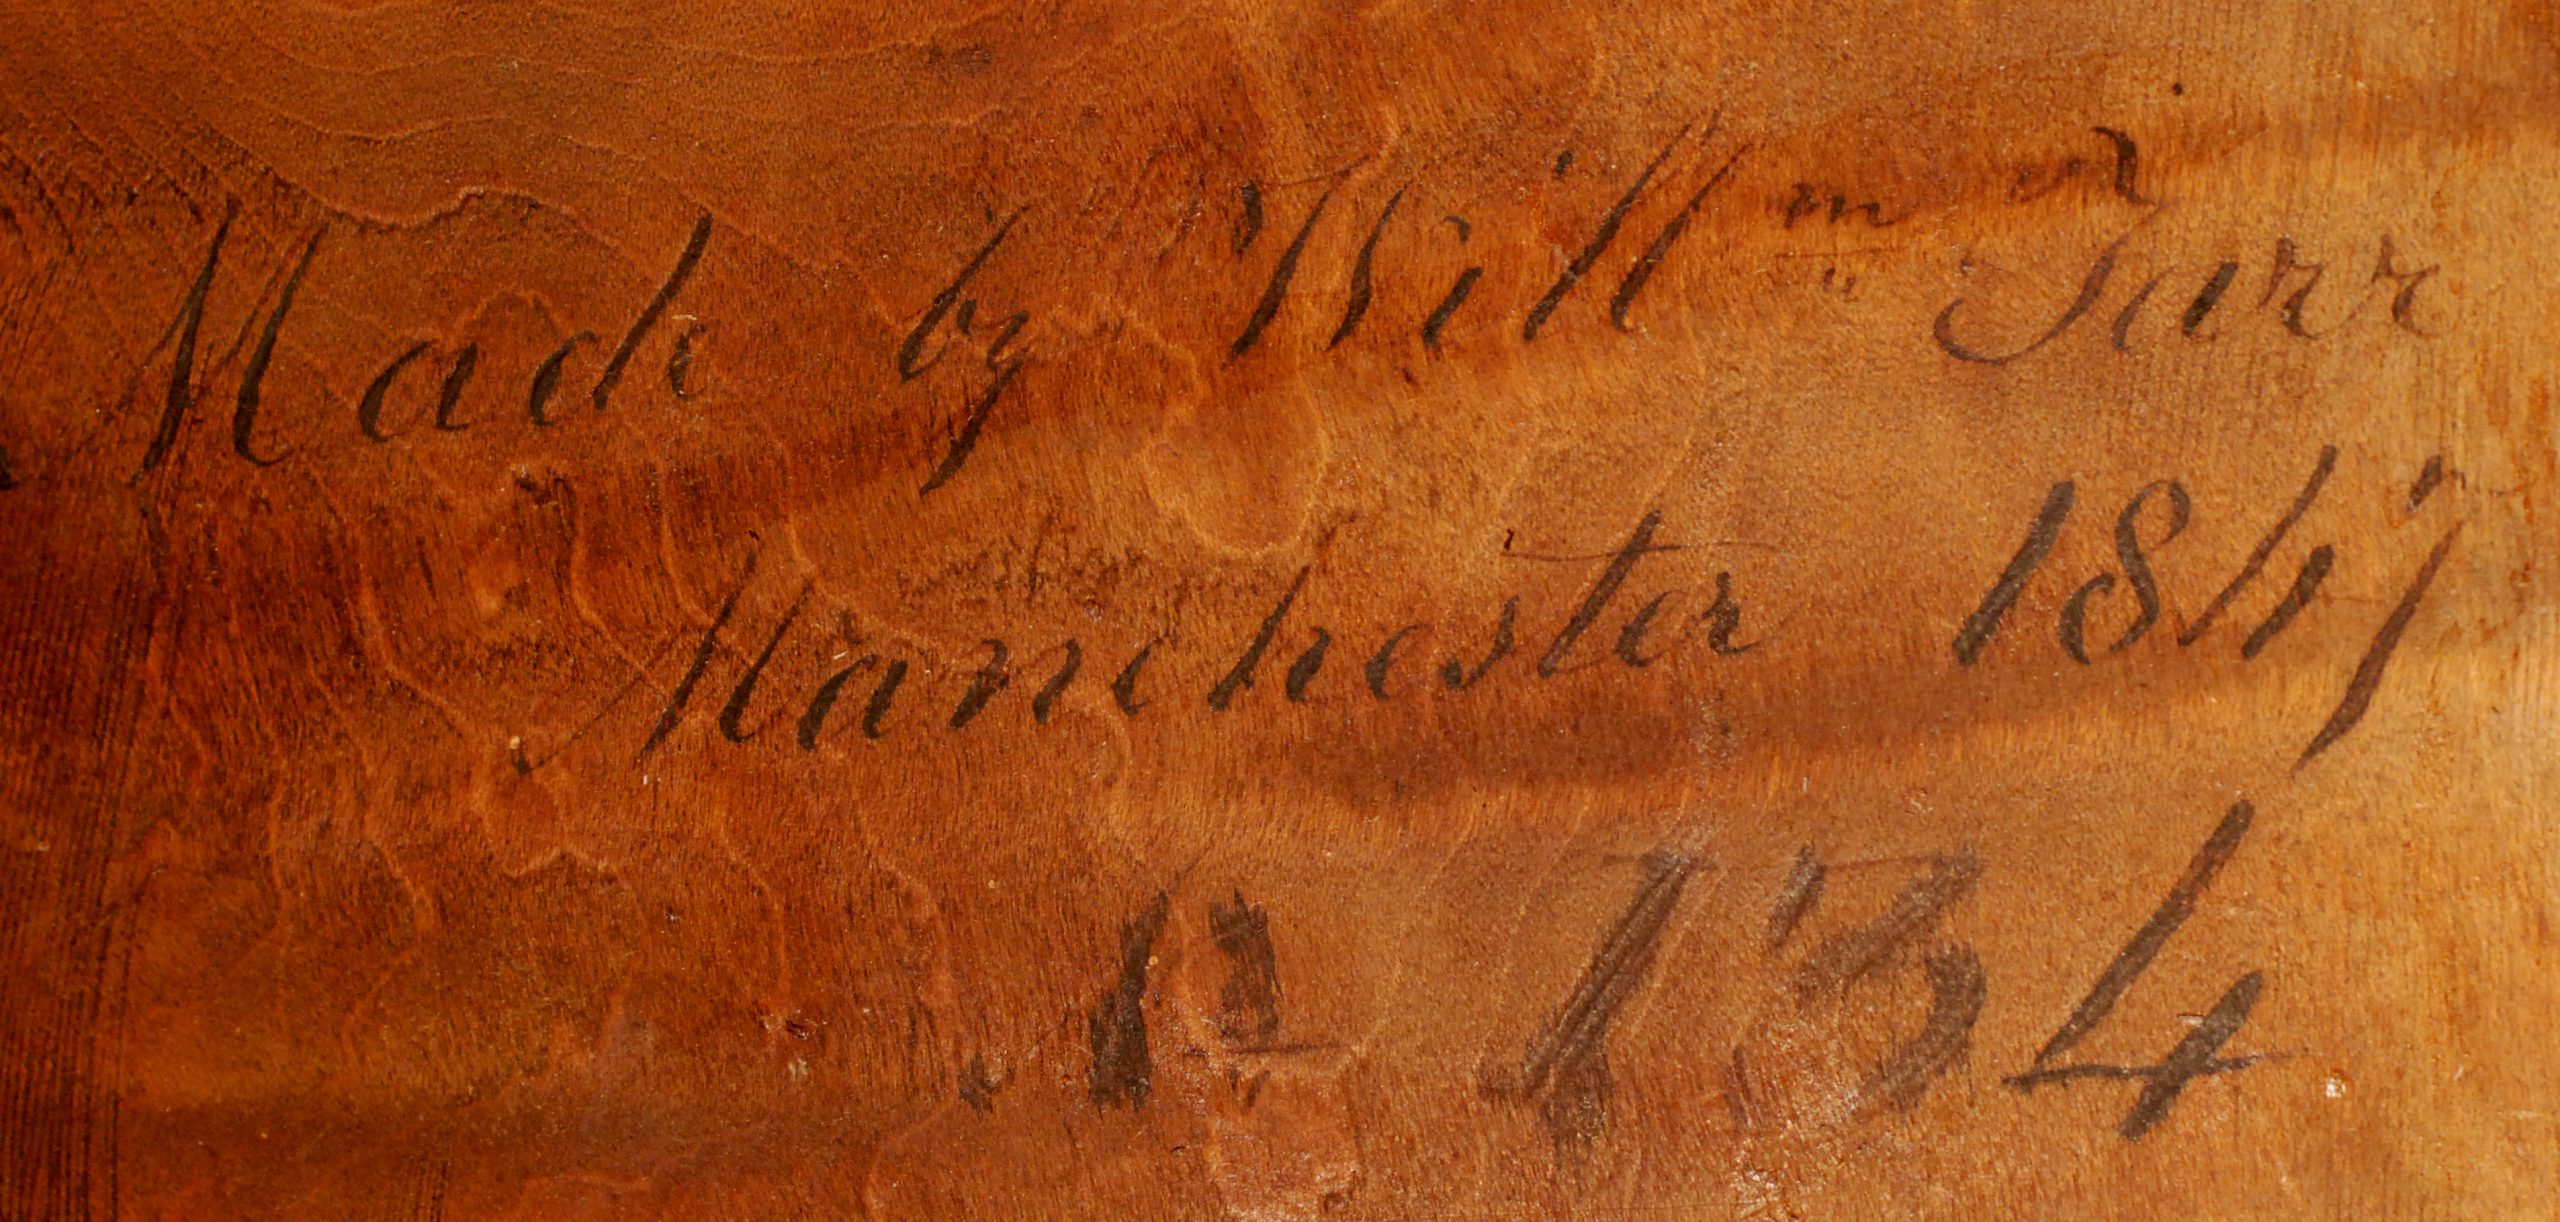 Made by Will^m Tarr
Manchester 1847
No 134